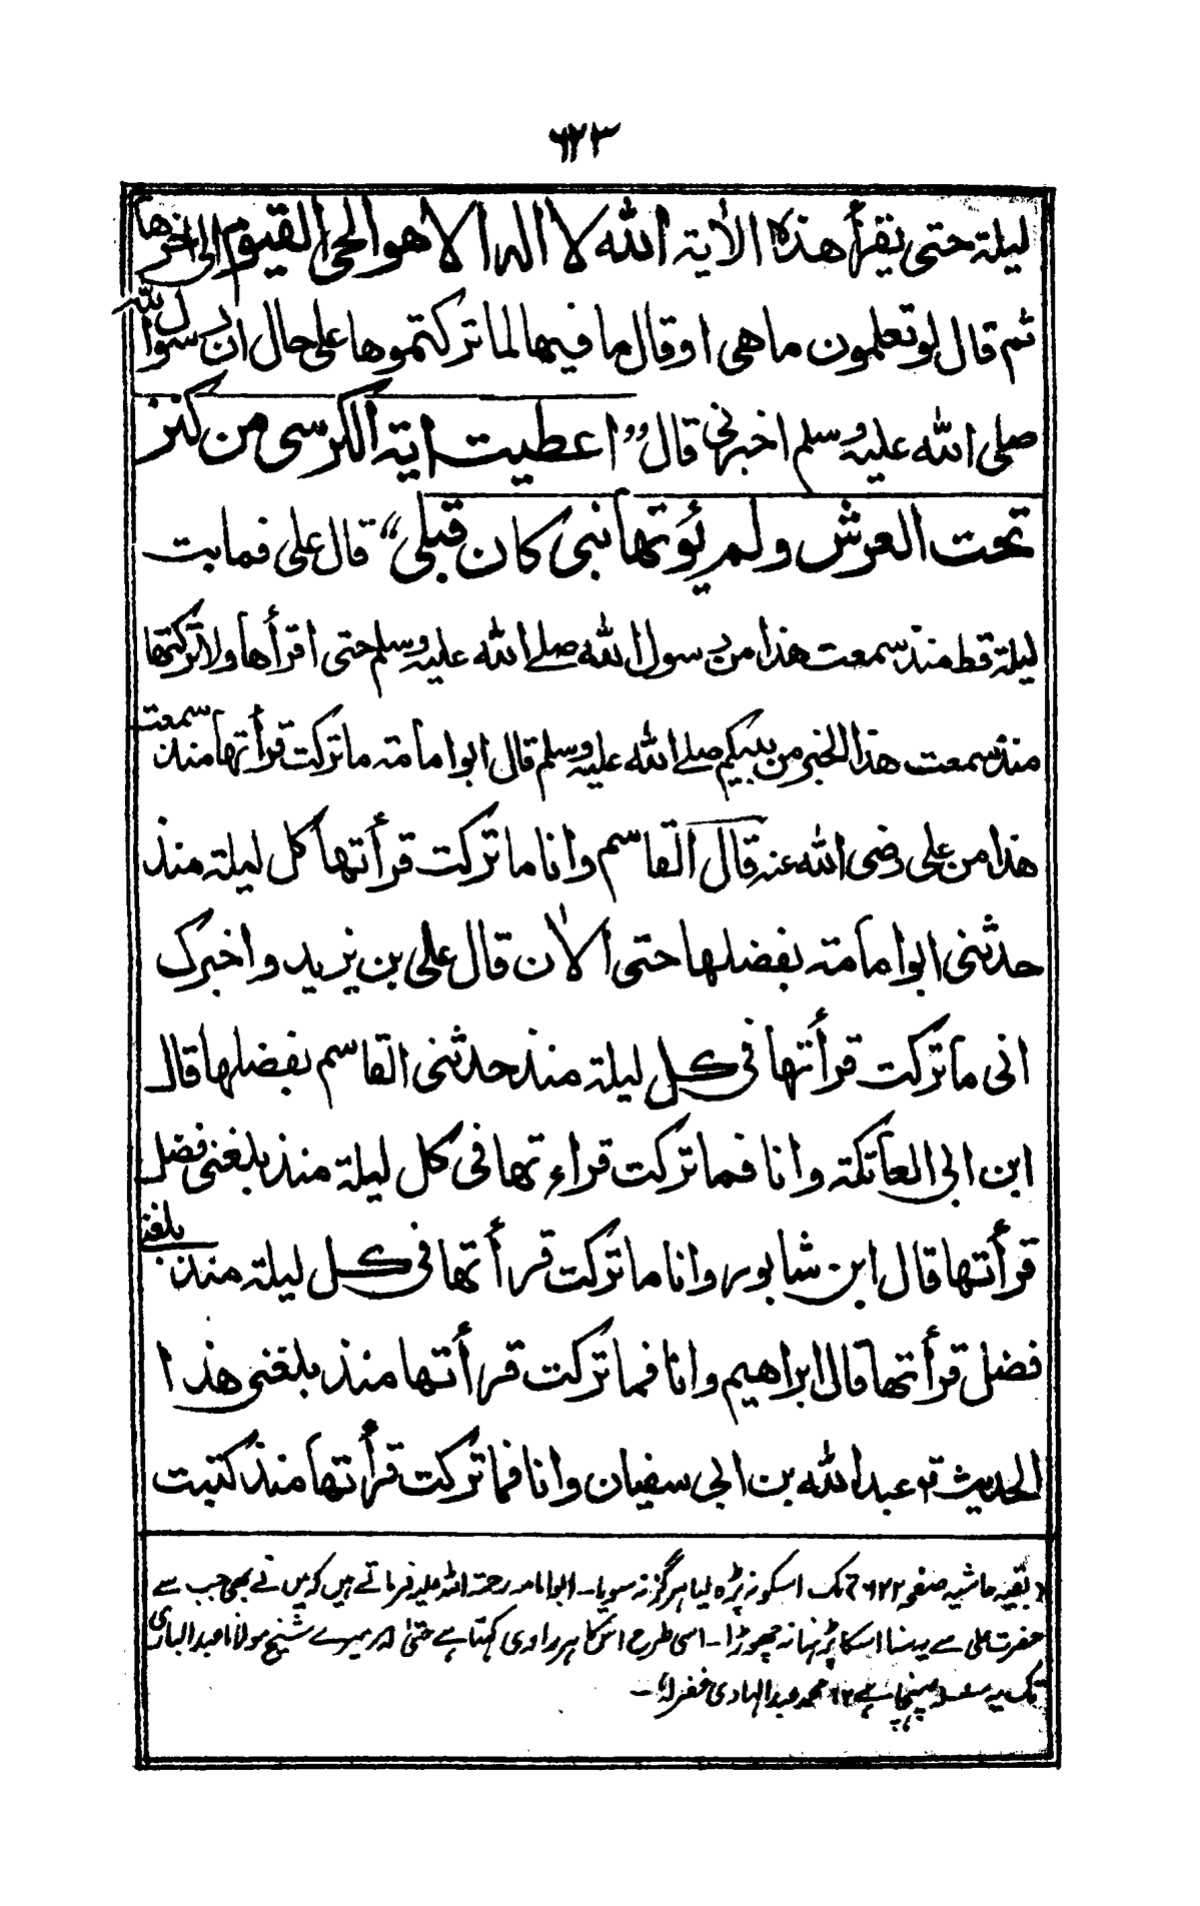 ٦٢٣
ليلة حتى يقرأ هذه الأية الله لا اله الا هو الحى القيوم الى اخرها
ثم قال لو تعلمون ما هى او قال ما فيها لما تركتموها على حال ان رسول الله
صلى الله عليه وسلم اخبرنى قال " اعطيت اية الكرسى من كنز
تحت العرش ولم يؤتها نبى كان قبلى " قال على فما بت
ليلة قط منذ سمعت هذا من رسول الله صلے الله عليه وسلم حتى اقرأها ولا تركتها
منذ سمعت هذا الخبر من نبيكم صلے الله عليه وسلم قال ابو امامة ما تركت قرأتها منذ سمعت
هذا من على رضى الله عنه قال القاسم وانا ما تركت قرأتها كل ليلة منذ
حدثنى ابو امامة بفضلها حتى الأن قال على بن يزيد واخبرك
انى ما تركت قرأتها فى كل ليلة منذ حدثنى القاسم بفضلها قال
ابن ابى العاتكة وانا فما تركت قراءتها فى كل ليلة منذ بلغنى فضل
قرأتها قال ابن شابور وانا ما تركت قرأتها فى كل ليلة منذ بلغنى
فضل قرأتها قال ابراهيم وانا فما تركت قرأتها منذ بلغنى هذا
الحديث عبد الله بن ابى سفيان وانا فما تركت قرأتها منذ كتبت
(بقیہ حاشیہ صفحہ ٦٢٢) تک اسکو نہ پڑہ لیا ہرگز نہ سویا۔ ابوامامہ رحمۃ اللہ علیہ فرماتے ہیں کہ میں نے بھی جب سے
حضرت علی سے یہ سنا اسکا پڑہنا نہ چھوڑا۔ اسی طرح اس کا ہر راوی کہتا ہے حتیٰ اور میرے شیخ مولانا عبدالباری
تک یہ پہنچا ہے ١٢ محمد عبدالہادی غفرلہٗ۔